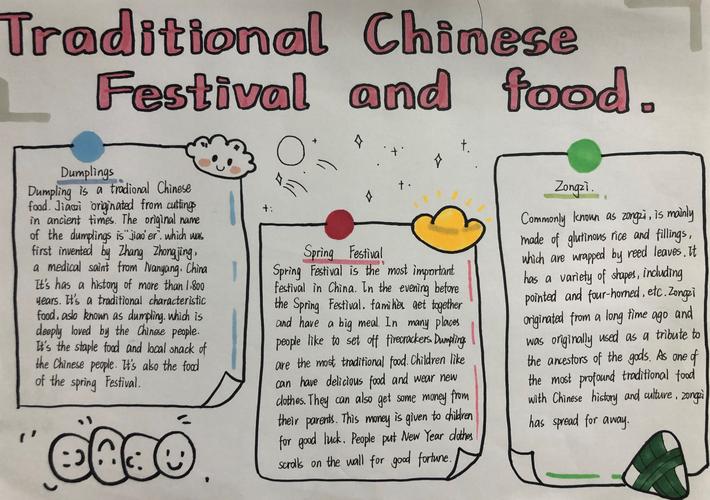 Traditional Chinese
Festival and food.
Dumplings
Dumpling is a tradional Chinese
food. Jiaozi originated from cuttings
in ancient times. The original name
of the dumplings is "jiao'er". which was
first invented by Zhang Zhongjing,
a medical saint from Nanyang. China
It's has a history of more than 1.800
years. It's a traditional characteristic
food. aslo known as dumpling. which is
deeply loved by the Chinese people.
It's the staple food and local snack of
the Chinese people. It's also the food
of the spring Festival.
Spring Festival
Spring Festival is the most important
festival in China. In the evening before
the Spring Festival. families get together
and have a big meal. In many places
people like to set off firecrackers. Dumplings
are the most traditional food. Children like
can have delicious food and wear new
clothes. They can also get some money from
their parents. This money is given to children
for good luck. People put New Year clothes
scrolls on the wall for good fortune.
Zongzi.
Commonly known as zongzi, is mainly
made of glutinous rice and fillings,
which are wrapped by reed leaves. It
has a variety of shapes, including
pointed and four-horned, etc. Zongzi
originated from a long time ago and
was originally used as a tribute to
the ancestors of the gods. As one of
the most profound traditional food
with Chinese history and culture, zongzi
has spread for away.